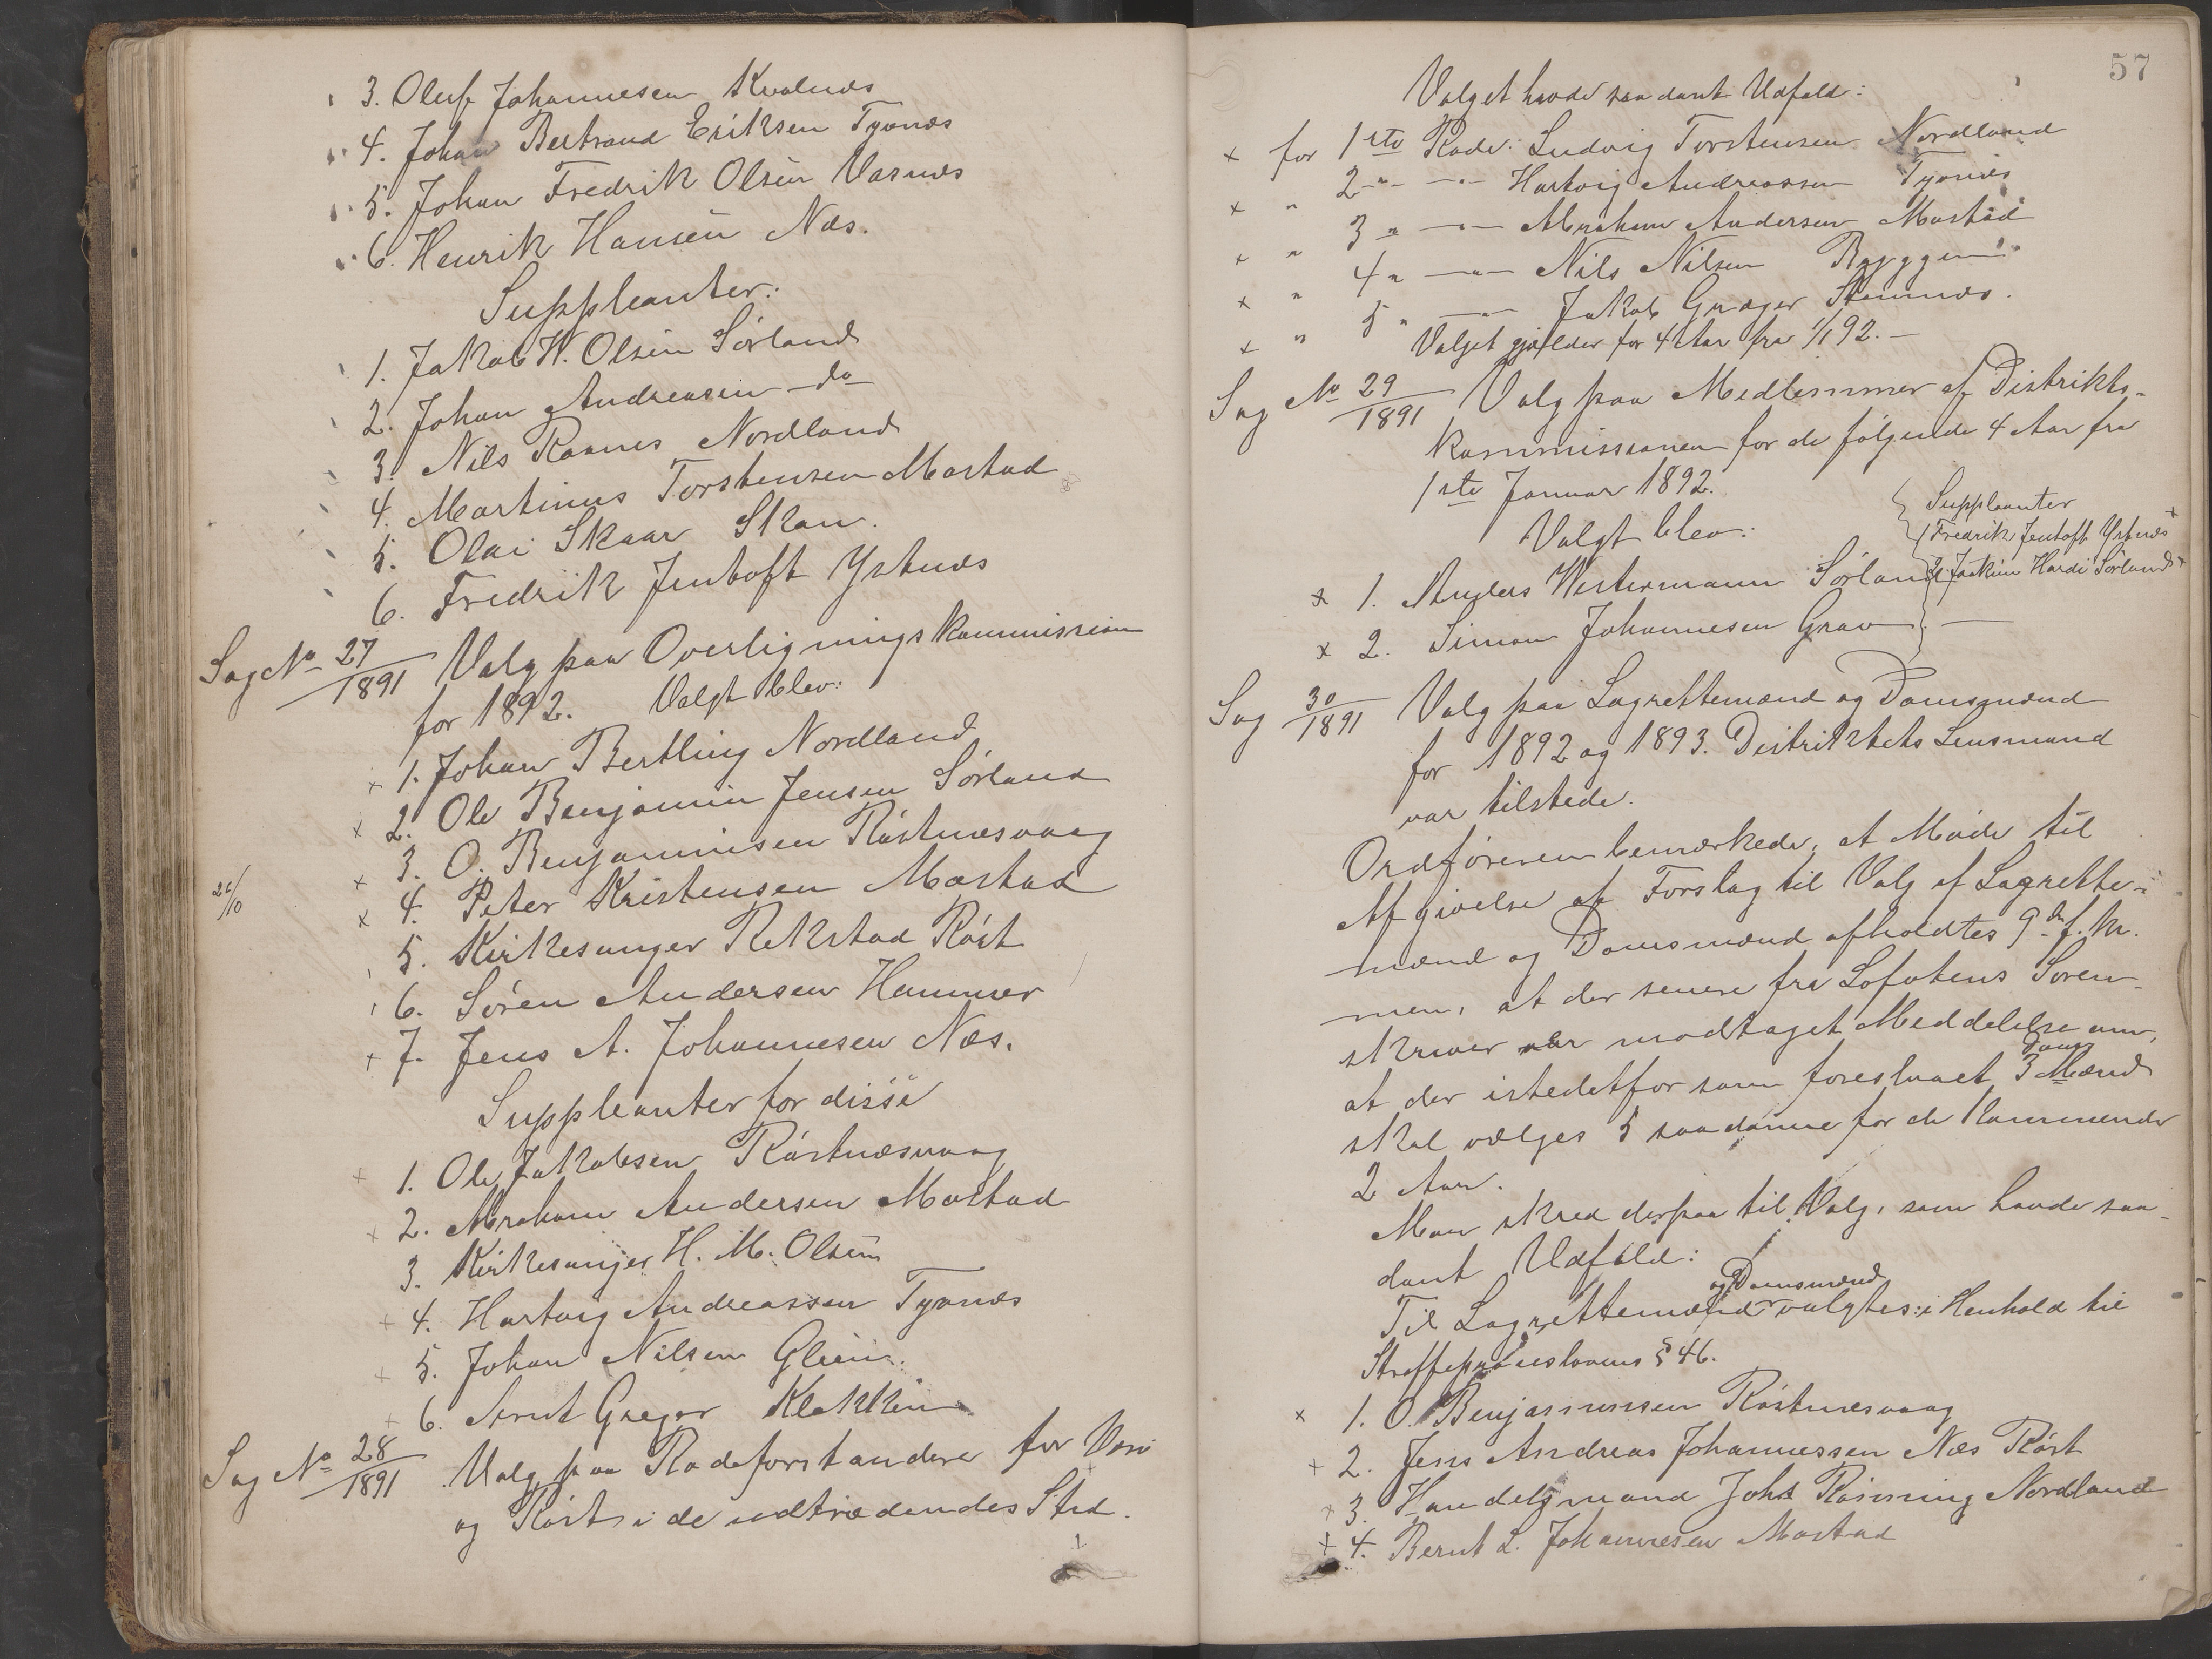 3. Oluf Johannesen Kvalnes
4. Johan Bertrand Eriksen Tyvnæs
5. Johan Fredrik Olsen Vasnæs
6. Henrik Hansen Næs.
Suppleanter:
1. Jakob W. Olsen Sørland
2. Johan Andreasen - do -
3. Nils Raanes Nordland
4. Martinus Torstensen Mostad
5. Olai Skaar Skan.
6. Fredrik Jentoft Ystnæs
Sag No 27/1891 Valg paa Overligningskommission
for 1892. Valgt blev:
1. Johan Bertling Nordland
2. Ole Benjamin Jensen Sørland
3. O. Benjaminsen Röstnæsvaag
20/10
4. Peter Kristensen Mostad
5. Kirkesanger Rekstad Röst
6. Sören Andersen Hammer
7. Jens A. Johannesen Næs.
Suppleanter for disse
1. Ole Jakobsen Röstnæsvaag
2. Abraham Andersen Mostad
3. Kirkesanger H. M. Olsen
4. Hartvig Andreassen Tyvnæs
5. Johan Nilsen Gleien.
6. Arnt Greger Klakken
Sag No 28/1891 Valg paa Rodeforstandere for Værö
og Röst i de udtrædendes Sted.
57
Valget havde saadant Udfald:
x for 1ste Rode: Ludvig Torstensen Nordland
x " 2 " - " - Hartvig Andreassen Tyvnæs
x " 3 " - " - Abraham Andersen Mostad
x " 4 " - " - Nils Nilsen
x " 5 " - " - Jakob Greger Stennæs.
Valget gjælder for 4 Aar fra 1/1 92. -
Sag No 29/1891 Valg paa Medlemmer af Distrikts-
kommissionen for de følgende 4 Aar fra
1ste Januar 1892.
Valgt blev:
Suppleanter
1 Fredrik Jentoft Ystnæs x
2. Joakim Hardi Sørland x
x 1. Anders Westermann Sørland
x 2. Simon Johannesen Grav -
Sag 30/1891 Valg paa Lagrettemænd og Domsmænd
for 1892 og 1893. Distriktets Lensmand
var tilstede.
Ordføreren bemærkede, at Møde til
Afgivelse af Forslag til Valg af Lagrette-
mænd og Domsmænd afholdtes 9de f. M.
men, at der senere fra Lofotens Soren-
skriver er modtaget Meddelelse om,
at der istedetfor som foreslaaet 3 Doms Mænd
skal vælges 5 saadanne for de kommende
2 Aar.
Man skred derpaa til Valg, som havde saa-
dant Udfald:
Til Lagrettemænd og Domsmænd valgtes: i Henhold til
Straffeproceslovens § 46.
x 1. O. Benjaminsen Röstnæsvaag
x 2. Jens Andreas Johannessen Næs Röst
x 3. Handelsmand Johs Rönning Nordland
x 4. Bernt L. Johannesen Mostad